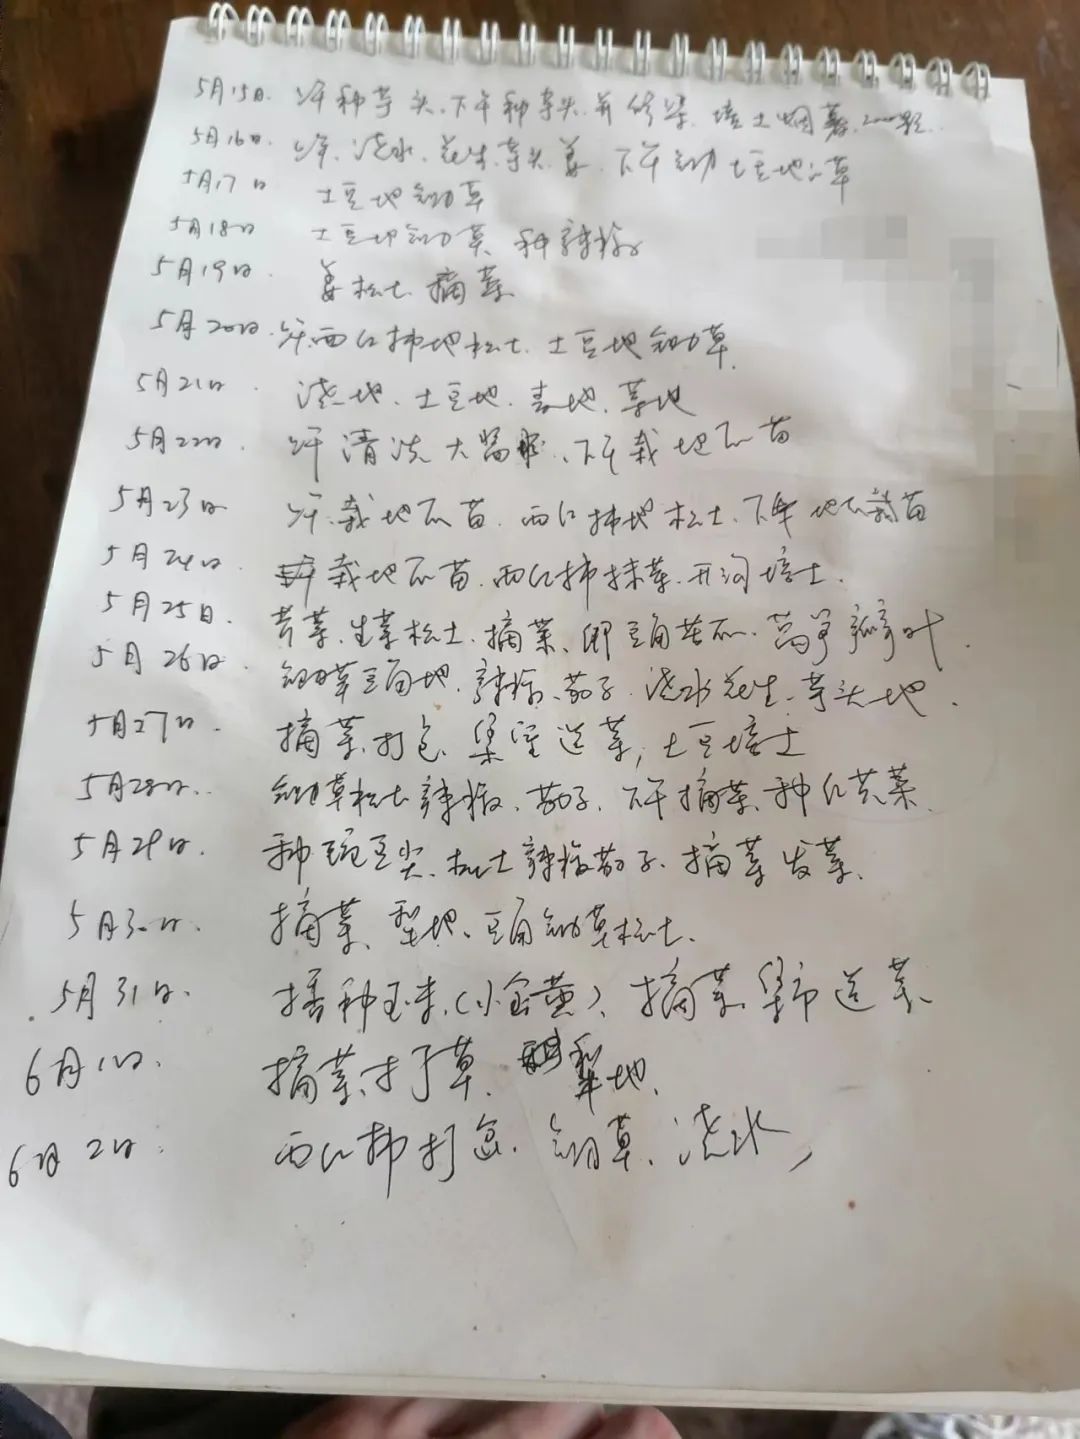 5月15日. 上午种芋头、下午种芋头、并 培土烟薯.2000颗.
5月16日. 上午、浇水、花生.芋头、姜、下午锄土豆地草
5月17日 土豆地锄草
5月18日 土豆地锄草 种辣椒
5月19日. 姜松土 摘菜
5月20日. 上午.西红柿地松土、土豆地锄草.
5月21日. 浇地、土豆地、姜地、芋地
5月22日 上午清洗大 、下午栽地瓜苗
5月23日 上午.栽地瓜苗.西红柿地松土、下午地瓜栽苗
5月24日. 上午栽地瓜苗.西红柿抹芽.开沟培土.
5月25日. 苦菜、生菜松土、摘菜、绑豆角苦瓜.莴笋瓣叶.
5月26日. 锄草豆角地.辣椒、茄子.浇水花生、芋头地.
5月27日. 摘菜.打包 送菜,土豆培土
5月28日.. 锄草松土辣椒、茄子.下午摘菜、种红芸菜.
5月29日. 种豌豆尖、松土辣椒茄子.摘菜发菜.
5月30日. 摘菜、犁地、豆角锄草松土.
5月31日. 播种玉米(小金黄)、摘菜. 送菜、
6月1日. 摘菜、打草. 犁地.
6月2日. 西红柿打岔.锄草、浇水,